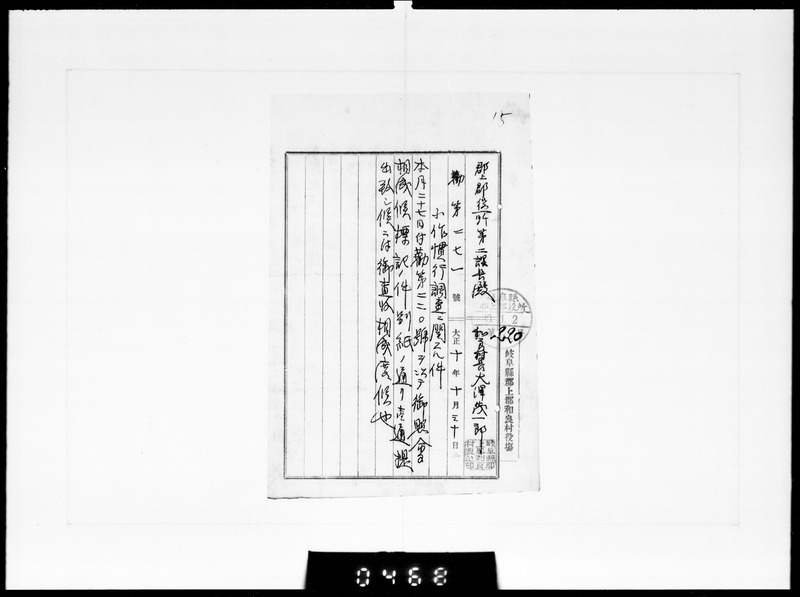 15
岐阜縣郡上郡和良村役場
2220
勸第二七一號
大正十年十月三十日
和良村長大澤茂一郎
郡上郡役所第二課長殿
小作慣行調査ニ関スル件
本月二十七日付勸第二二二〇號ヲ以テ御照會
相成候標記ノ件別紙ノ通リ
出致シ候ニ付御査収相成度候也
0468